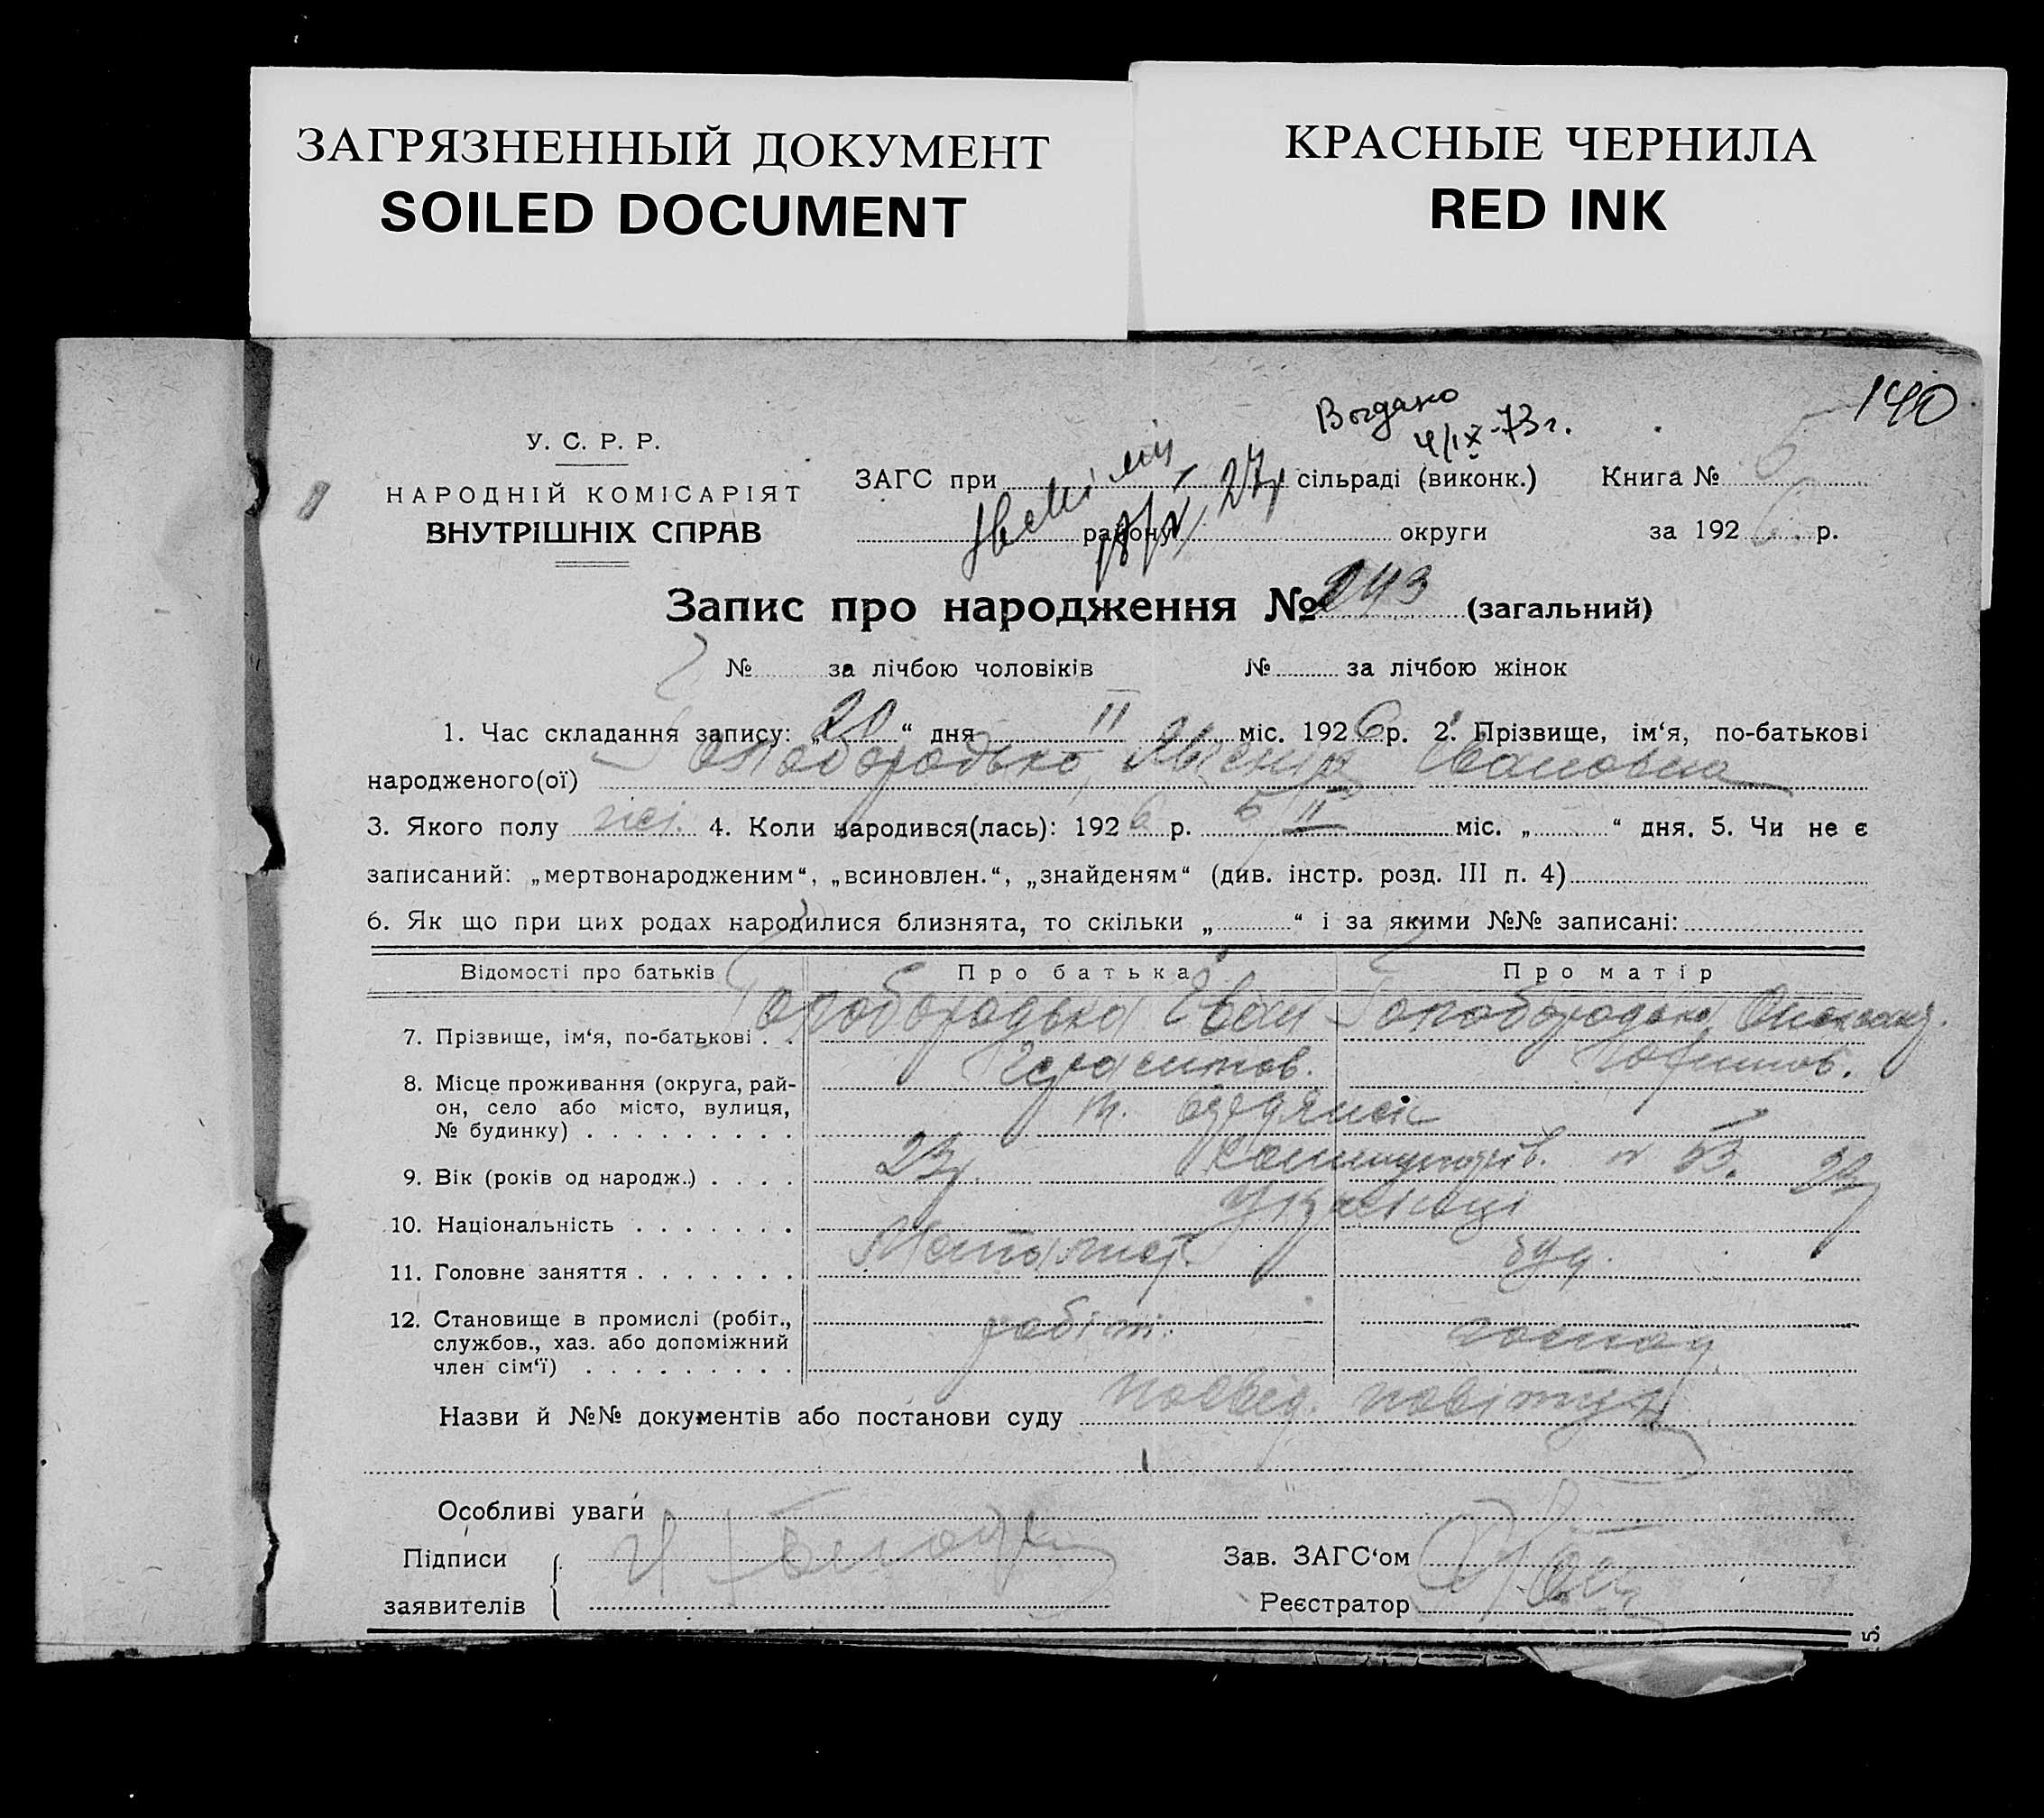 ЗАГРЯЗНЕННЫЙ ДОКУМЕНТ
SOILED DOCUMENT
КРАСНЫЕ ЧЕРНИЛА
RED INK
140
Выдано
4/IX-73 г.
У. С. Р. Р.
НАРОДНІЙ КОМІСАРІЯТ
ВНУТРІШНІХ СПРАВ
ЗАГС при сільраді (виконк.) Книга № 5
району округи за 1926 р.
Запис про народження № 243 (загальний)
№ за лічбою чоловіків № за лічбою жінок
1. Час складання запису: „20“ дня II міс. 1926 р. 2. Прізвище, ім‘я, по-батькові
народженого(ої) Голобородько, Івановна
3. Якого полу жін. 4. Коли народився(лась): 1926 р. 5/II міс. „ “ дня. 5. Чи не є
записаний: „мертвонародженим“, „всиновлен.“, „знайденям“ (див. інстр. розд. III п. 4)
6. Як що при цих родах народилися близнята, то скільки „ “ і за якими №№ записані:
Відомості про батьків Про батька Про матір
7. Прізвище, ім‘я, по-батькові . . Голобородько Іван Голобородько
Герасимов.
8. Місце проживання (округа, рай-
он, село або місто, вулиця,
№ будинку) . . . . . . . . . м. Бердянськ
9. Вік (років од народж.) . . . . 23 р. № 53. 22
10. Національність . . . . . . . Українці
11. Головне заняття . . . . . . .
12. Становище в промислі (робіт.,
службов., хаз. або допоміжний
член сім‘ї) . . . . . . . . . робітн. господ.
Назви й №№ документів або постанови суду посвід.
Особливі уваги
Підписи
заявителів
Зав. ЗАГС‘ом
Реєстратор
5.